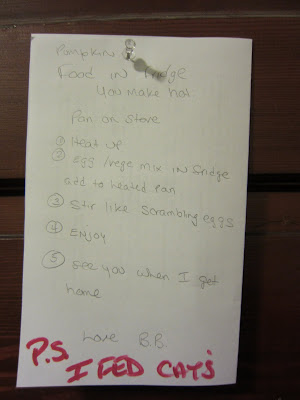 Pumpkin
Food in fridge
You make hot
Pan on Stove
① Heat up
② egg/vege mix in fridge
add to heated pan
③ Stir like scrambling eggs
④ Enjoy
⑤ See you when I get
home
Love B.B.
P.S.
I FED CATS